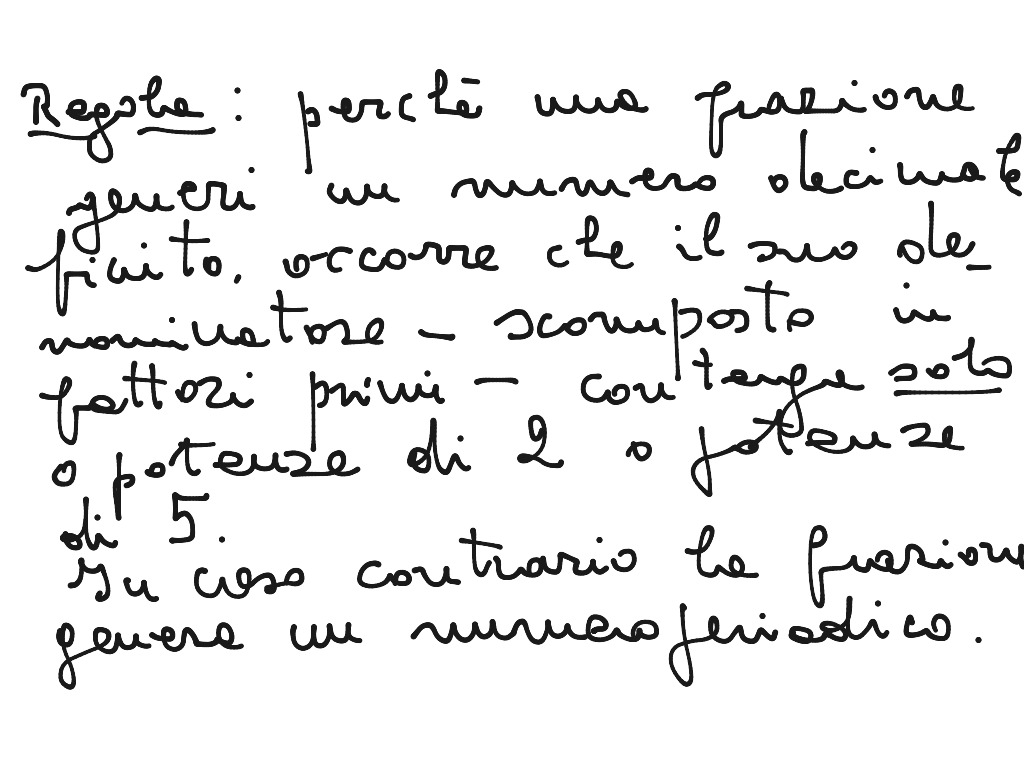 Regola : perchè una frazione
generi un numero decimale
finito, occorre che il suo de_
nominatore – scomposto in
fattori primi – contenga solo
o potenze di 2 o potenze
di 5.
In caso contrario la frazione
genera un numero periodico.